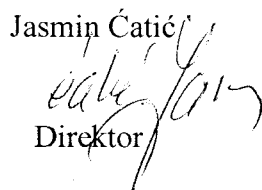 Jasmin Ćatić
Direktor